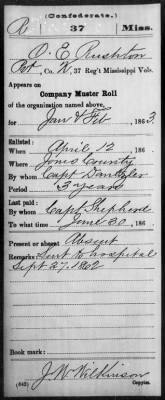 (Confederate.)
R 37 Miss.
O. E. Rushton
Pvt, Co. K, 37 Reg't Mississippi Vols.
Appears on
Company Muster Roll
of the organization named above,
for Jan & Feb, 1863.
Enlisted:
When April 12, 186
Where Jones County
By whom Capt Dantzler
Period 3 years
Last paid:
By whom Capt Shepherd
To what time June 30, 186
Present or absent Absent
Remarks: Sent to hospital
Sept 27. 1862
Book mark:
J. W. Wilkinson
(642) Copyist.